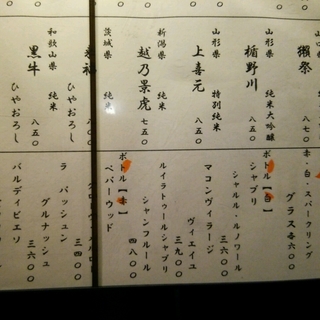 山口県
獺祭
八七〇
山形県 純米大吟醸
楯野川
八五〇
山形県 特別純米
上喜元
八五〇
新潟県 純米
越乃景虎
七五〇
茨城県 純
ひやおろし
八〇
和歌山県 純米
黒牛
八五〇
ひやおろし
赤・白・スパークリング
グラス各六〇〇
ボトル【白】
シャブリ
シャルル・ルノワール
三六〇〇
マコンヴィラージ
ヴィエイユ
三九〇〇
ルイラトゥールシャブリ
シャンフルール
四八〇〇
ボトル【赤】
ペパーウッド
ラ パッション
グルナッシュ
三四〇〇
バルディビエソ
三六〇〇